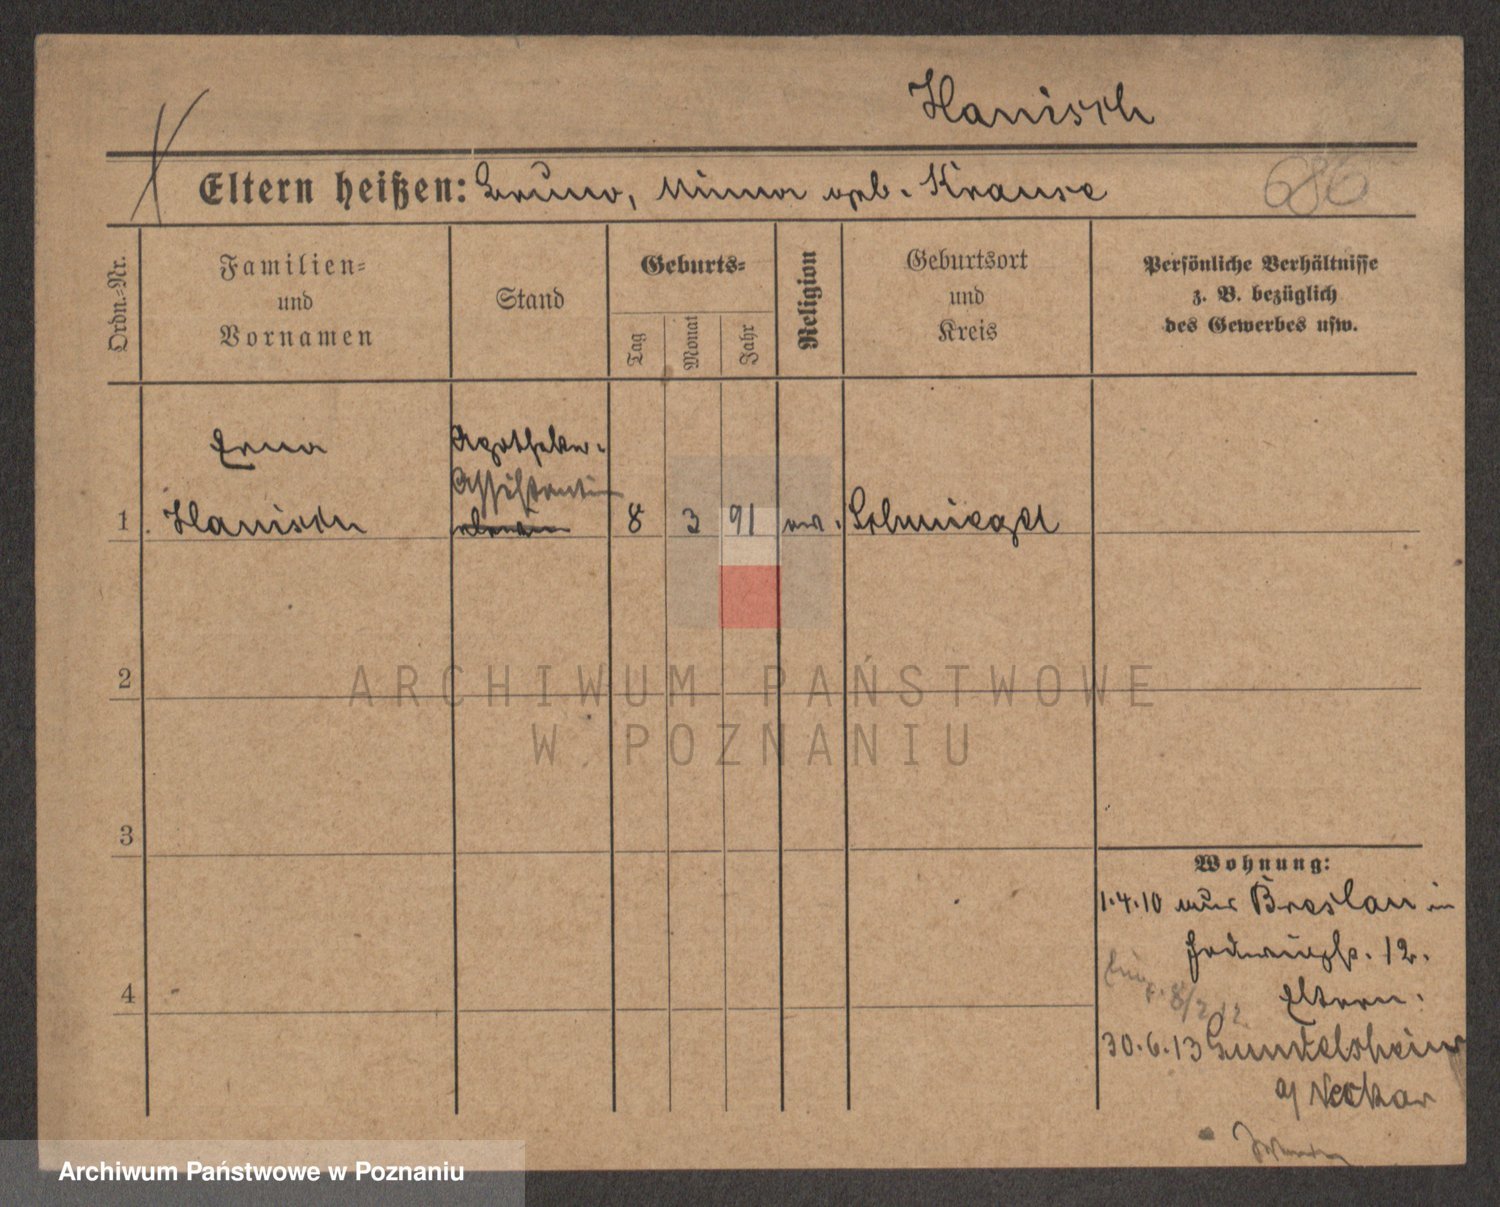 Hanisch
Eltern heißen: Bruno, Minna geb. Krause
686
Ordn.-Nr.
Familien-
und
Vornamen
Stand
Geburts-
Tag
Monat
Jahr
Religion
Geburtsort
und
Kreis
Persönliche Verhältnisse
z. B. bezüglich
des Gewerbes usw.
Erna
Hanisch
Apotheker-
Assistentin
1
8
3
91
ev.
Schmiegel
2
3
4
ARCHIWUM PAŃSTWOWE
W POZNANIU
Wohnung:
1.4.10 aus Breslau in
12.
Eltern.
30.6.13 Gundelsheim
a/ Neckar
Archiwum Państwowe w Poznaniu